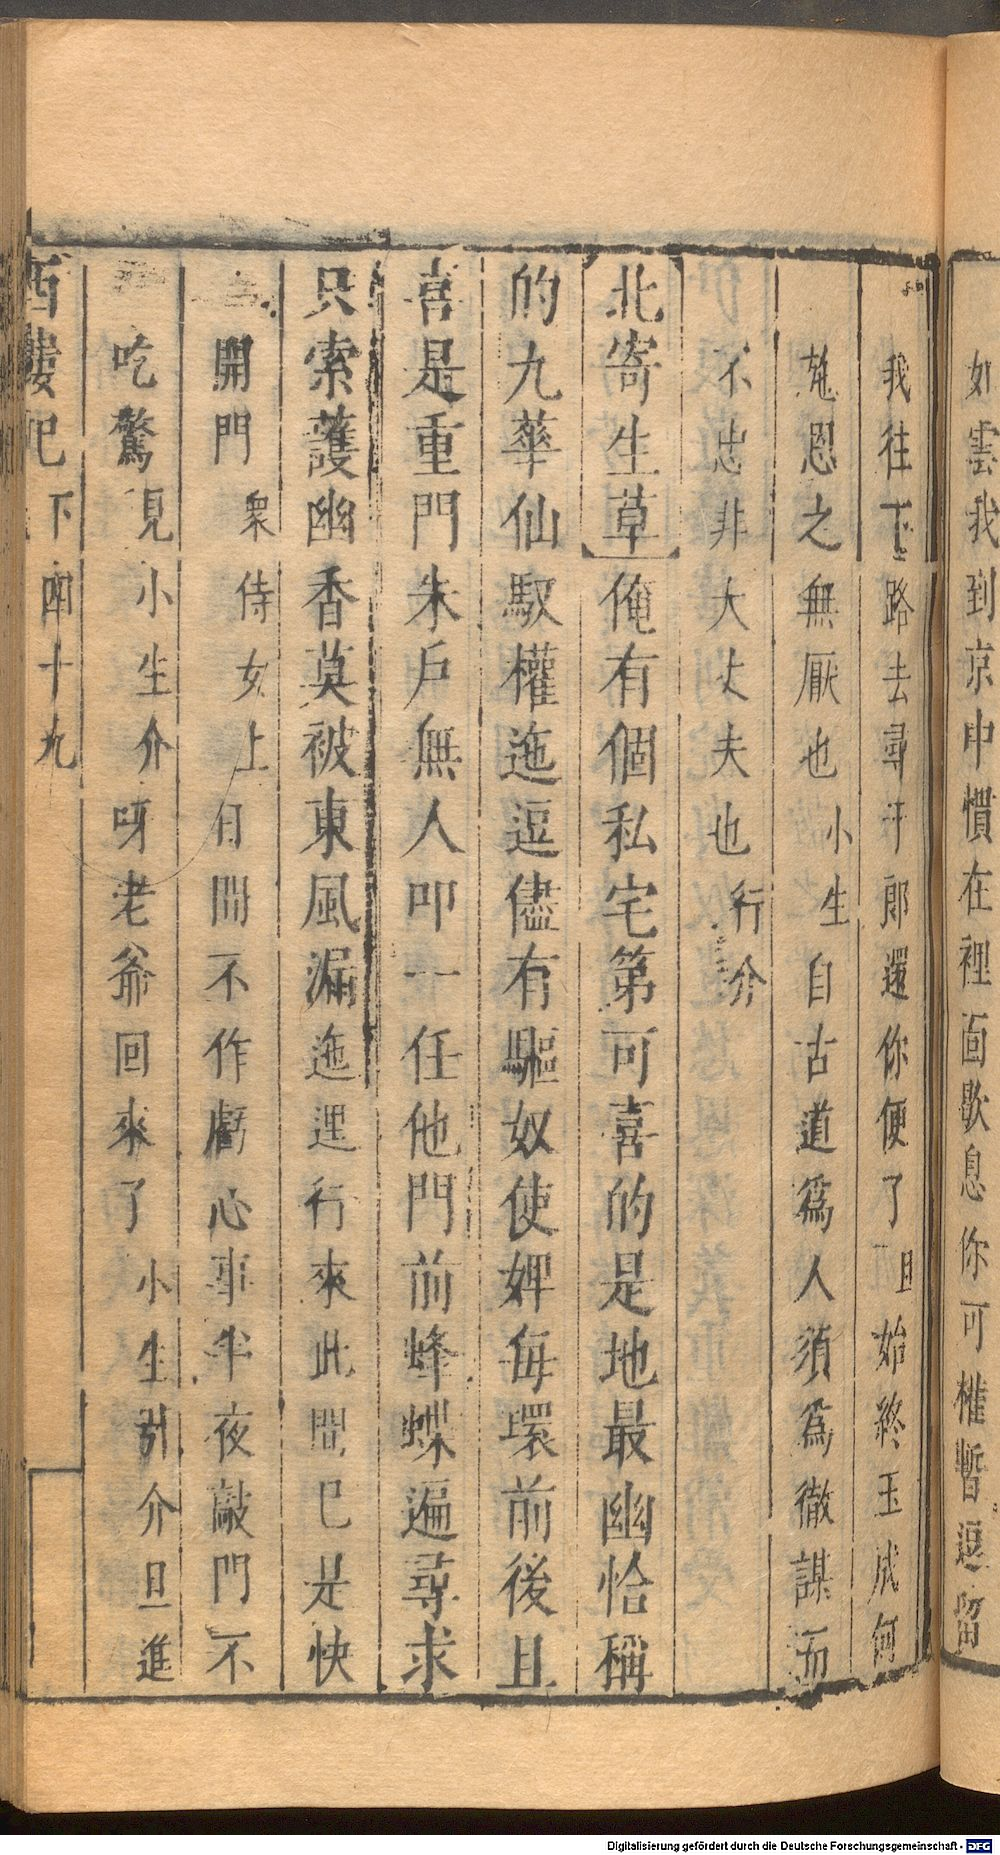 如雲我到京中慣在裡面歇息你可權暫逗留
我往下路去尋于郎還你便了旦始終玉成何
恩之無厭也小生自古道爲人須爲徹謀而
不忠非大丈夫也行介
北寄生草俺有個私宅第可喜的是地最幽恰稱
的九華仙馭權迤逗儘有驅奴使婢每環前後且
喜是重門朱戶無人叩一任他門前蜂蝶遍尋求
只索護幽香莫被東風漏迤逗行來此間已是快
開門衆侍女上日間不作虧心事半夜敲門不
吃驚見小生介呀老爺回來了小生引介旦進
西樓記下四十九
Digitalisierung gefördert durch die Deutsche Forschungsgemeinschaft - DFG